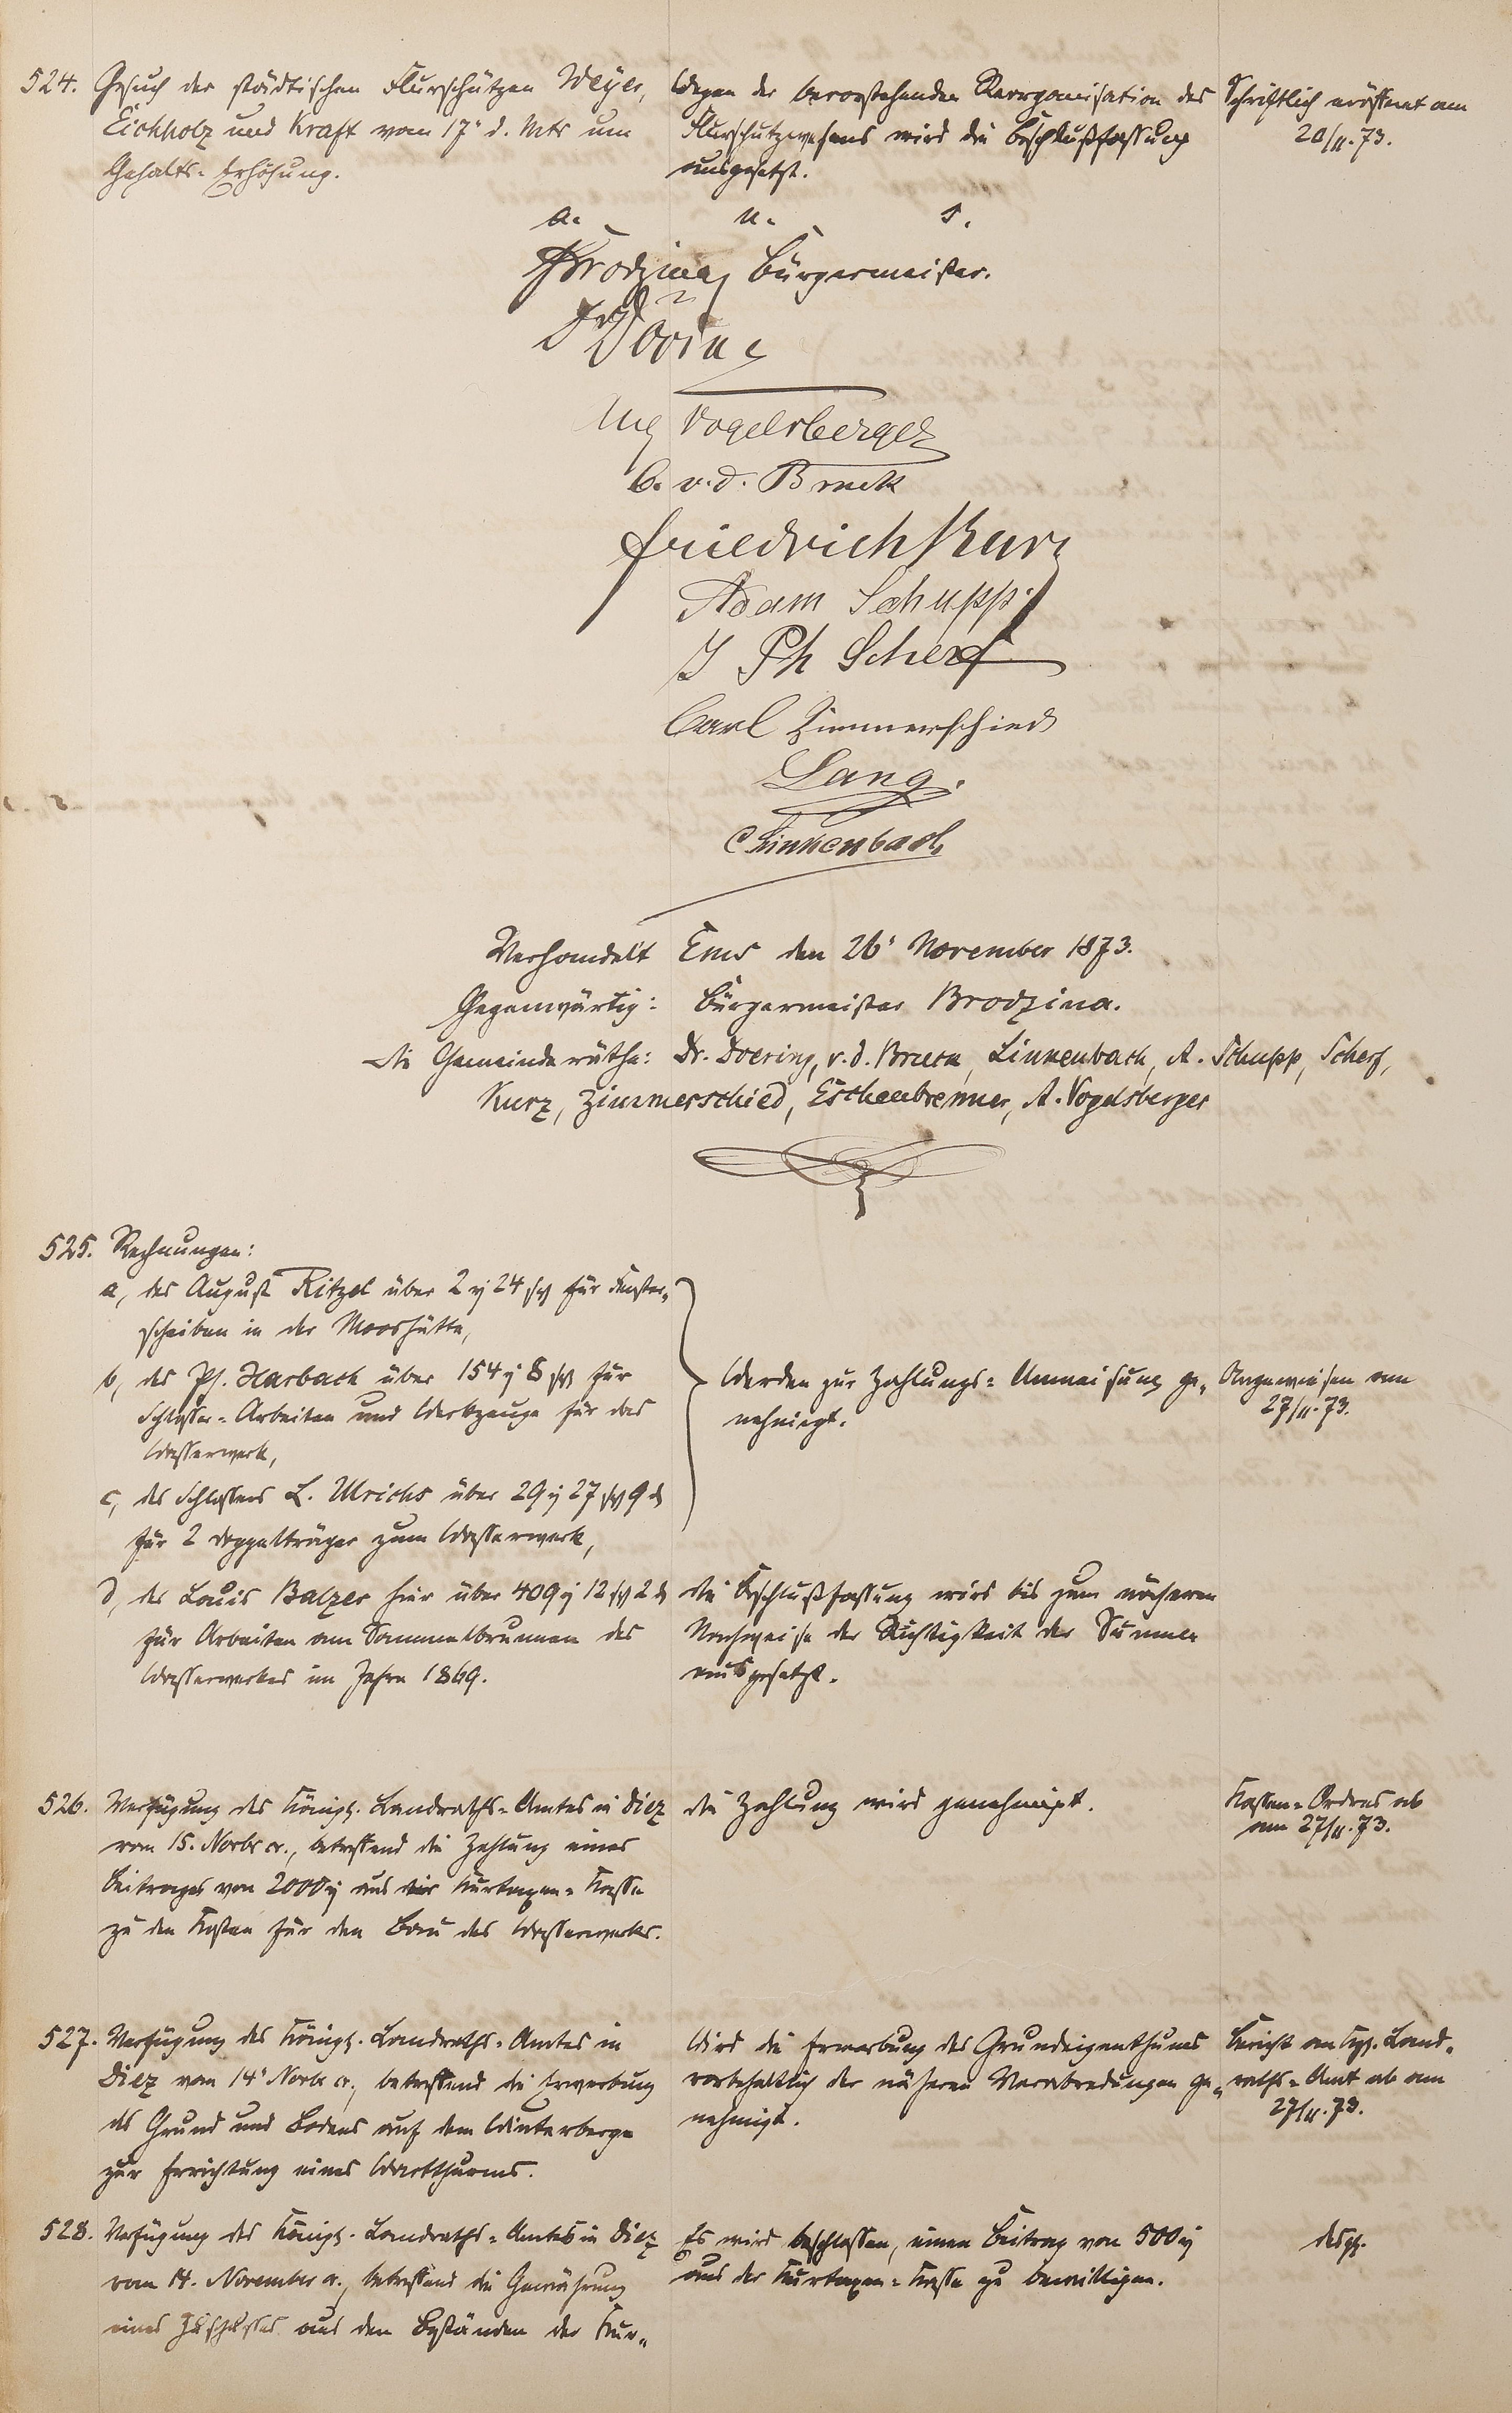 524. Gesuch der städtischen Flurschützen Weyer,
Eichholz und Kraft vom 17t d. Mts um
Gehalts-Erhöhung.
Wegen der bevorstehenden Reorganisation des
Flurschutzwesens wird die Beschlußfassung
ausgesetzt.
Schriftlich eröffnet am
20/11.73.
a. u. s.
Brodzina, Bürgermeister.
Dr Döring
Aug Vogelsberger
C. v. d. Bruck
Friedrich Kurz
Adam Schupp
J Ph Scherf
Carl Zimmerschied
Lang.
C Linkenbach
Verhandelt Ems den 26t November 1873.
Gegenwärtig: Bürgermeister Brodzina.
Die Gemeinderäthe: Dr. Doering, v. d. Bruck, Linkenbach, A. Schupp, Scherf,
Kurz, Zimmerschied, Eschenbrenner, A. Vogelsberger
525. Rechnungen:
a, des August Ritzel über 2 rℓ 24 sgr für Fenster-
scheiben in der Mooshütte,
b, des Ph. Harbach über 154 rℓ 8 sgr für
Schlosser-Arbeiten und Werkzeuge für das
Wasserwerk,
c, des Schlossers L. Ulrichs über 29 rℓ 27 sgr 9 d
für 2 Doppelträger zum Wasserwerk,
Werden zur Zahlungs-Anweisung ge-
nehmigt.
Angewiesen am
27/11.73.
d, des Louis Balzer hier über 409 rℓ 12 sgr 2 d
für Arbeiten am Sammelbrunnen des
Wasserwerkes im Jahre 1869.
Die Beschlußfassung wird bis zum näheren
Nachweise der Richtigkeit der Summe
ausgesetzt.
526. Verfügung des Königl. Landraths-Amtes in Diez
vom 15. Novbr cr., betreffend die Zahlung eines
Beitrages von 2000 rℓ aus der Kurtaxen-Kasse
zu den Kosten für den Bau des Wasserwerks.
Die Zahlung wird genehmigt.
Kassen-Ordres ab
am 27/11.73.
527. Verfügung des Königl. Landraths-Amtes in
Diez vom 14t Novbr cr., betreffend die Erwerbung
des Grund und Bodens auf dem Winterberge
zur Errichtung eines Wartthurms.
Wird die Erwerbung des Grundeigenthums
vorbehaltlich der näheren Verabredungen ge-
nehmigt.
Bericht an Kgl. Land-
raths-Amt ab am
27/11.73.
528. Verfügung des Königl. Landraths-Amtes in Diez
vom 14. November cr., betreffend die Gewährung
eines Zuschusses aus den Beständen der Kur-
Es wird beschlossen, einen Beitrag von 500 rℓ
aus der Kurtaxen-Kasse zu bewilligen.
desgl.